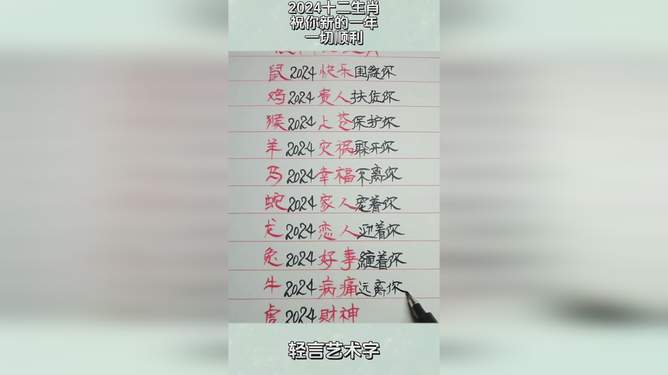 2024十二生肖
祝你新的一年
一切顺利
鼠2024快乐围绕你
鸡2024贵人扶佐你
猴2024上苍保护你
羊2024灾祸躲开你
马2024幸福不离你
蛇2024家人宠着你
龙2024恋人迎着你
兔2024好事缠着你
牛2024病痛远离你
虎2024财神
轻言艺术字